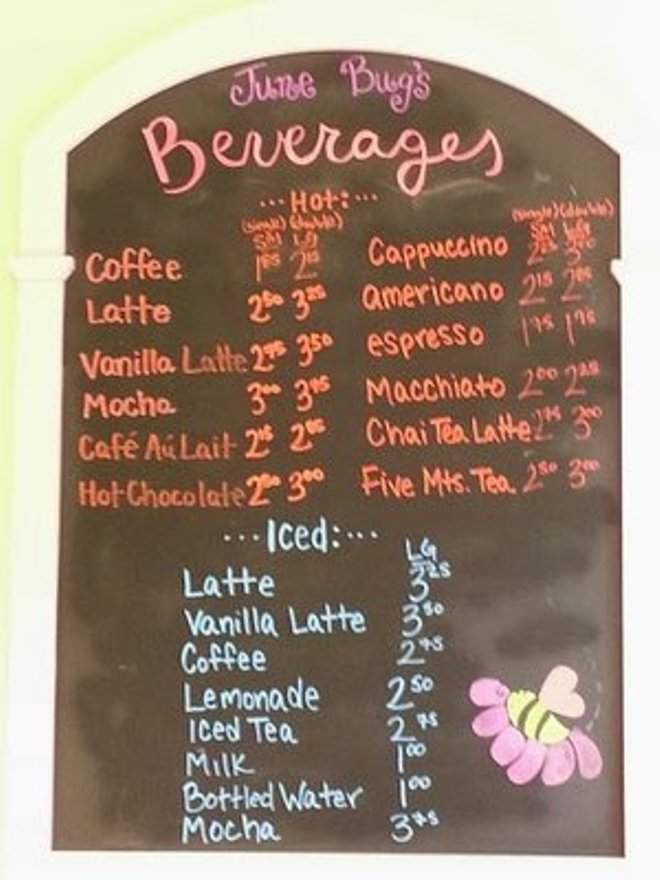 June Bug's
Beverages
...Hot:...
(single) (double)
SM LG
Coffee
Latte 2⁵⁰ 3²⁵
Vanilla Latte 2⁷⁵ 3⁵⁰
Mocha 3⁰⁰ 3⁷⁵
Café Aú Lait 2¹⁵
Hot Chocolate 2⁵⁰ 3⁰⁰
(single) (double)
SM LG
Cappuccino
americano 2¹⁵
espresso 1⁷⁵ 1⁷⁵
Macchiato 2⁰⁰ 2²⁵
Chai Tea Latte 2⁷⁵ 3⁰⁰
Five Mts. Tea 2⁵⁰ 3⁰⁰
...Iced:...
LG
Latte 3²⁵
Vanilla Latte 3⁵⁰
Coffee 2⁷⁵
Lemonade 2⁵⁰
Iced Tea 2⁷⁵
Milk 1⁰⁰
Bottled Water 1⁰⁰
Mocha 3⁷⁵